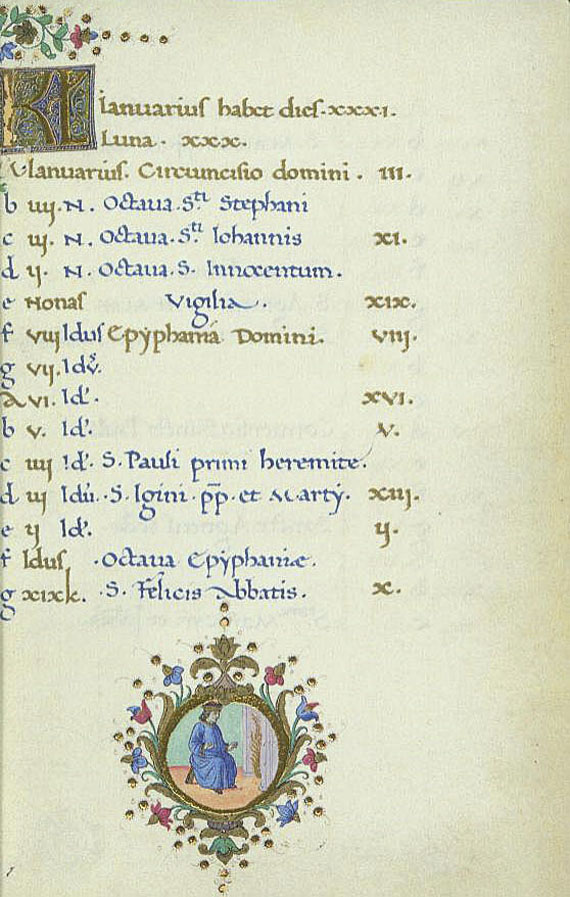 KL Ianuarius habet dies. xxxi.
Luna. xxx.
A Ianuarius. Circumcisio domini. iii.
b iiij. N. Octaua. Sti Stephani
c iij. N. Octaua. Sti Iohannis xi.
d ij. N. Octaua. S. Innocentum.
e Nonas Vigilia. xix.
f viij Idus Epyphania Domini. viij.
g vij. Idu.
A vi. Id. xvi.
b v. Id. v.
c iiij Id. S. Pauli primi heremite.
d iij Idu. S. Igini. pp. et Marty. xiij.
e ij Id. ij.
f Idus. Octaua Epyphanie.
g xix k. S. Felicis Abbatis. x.